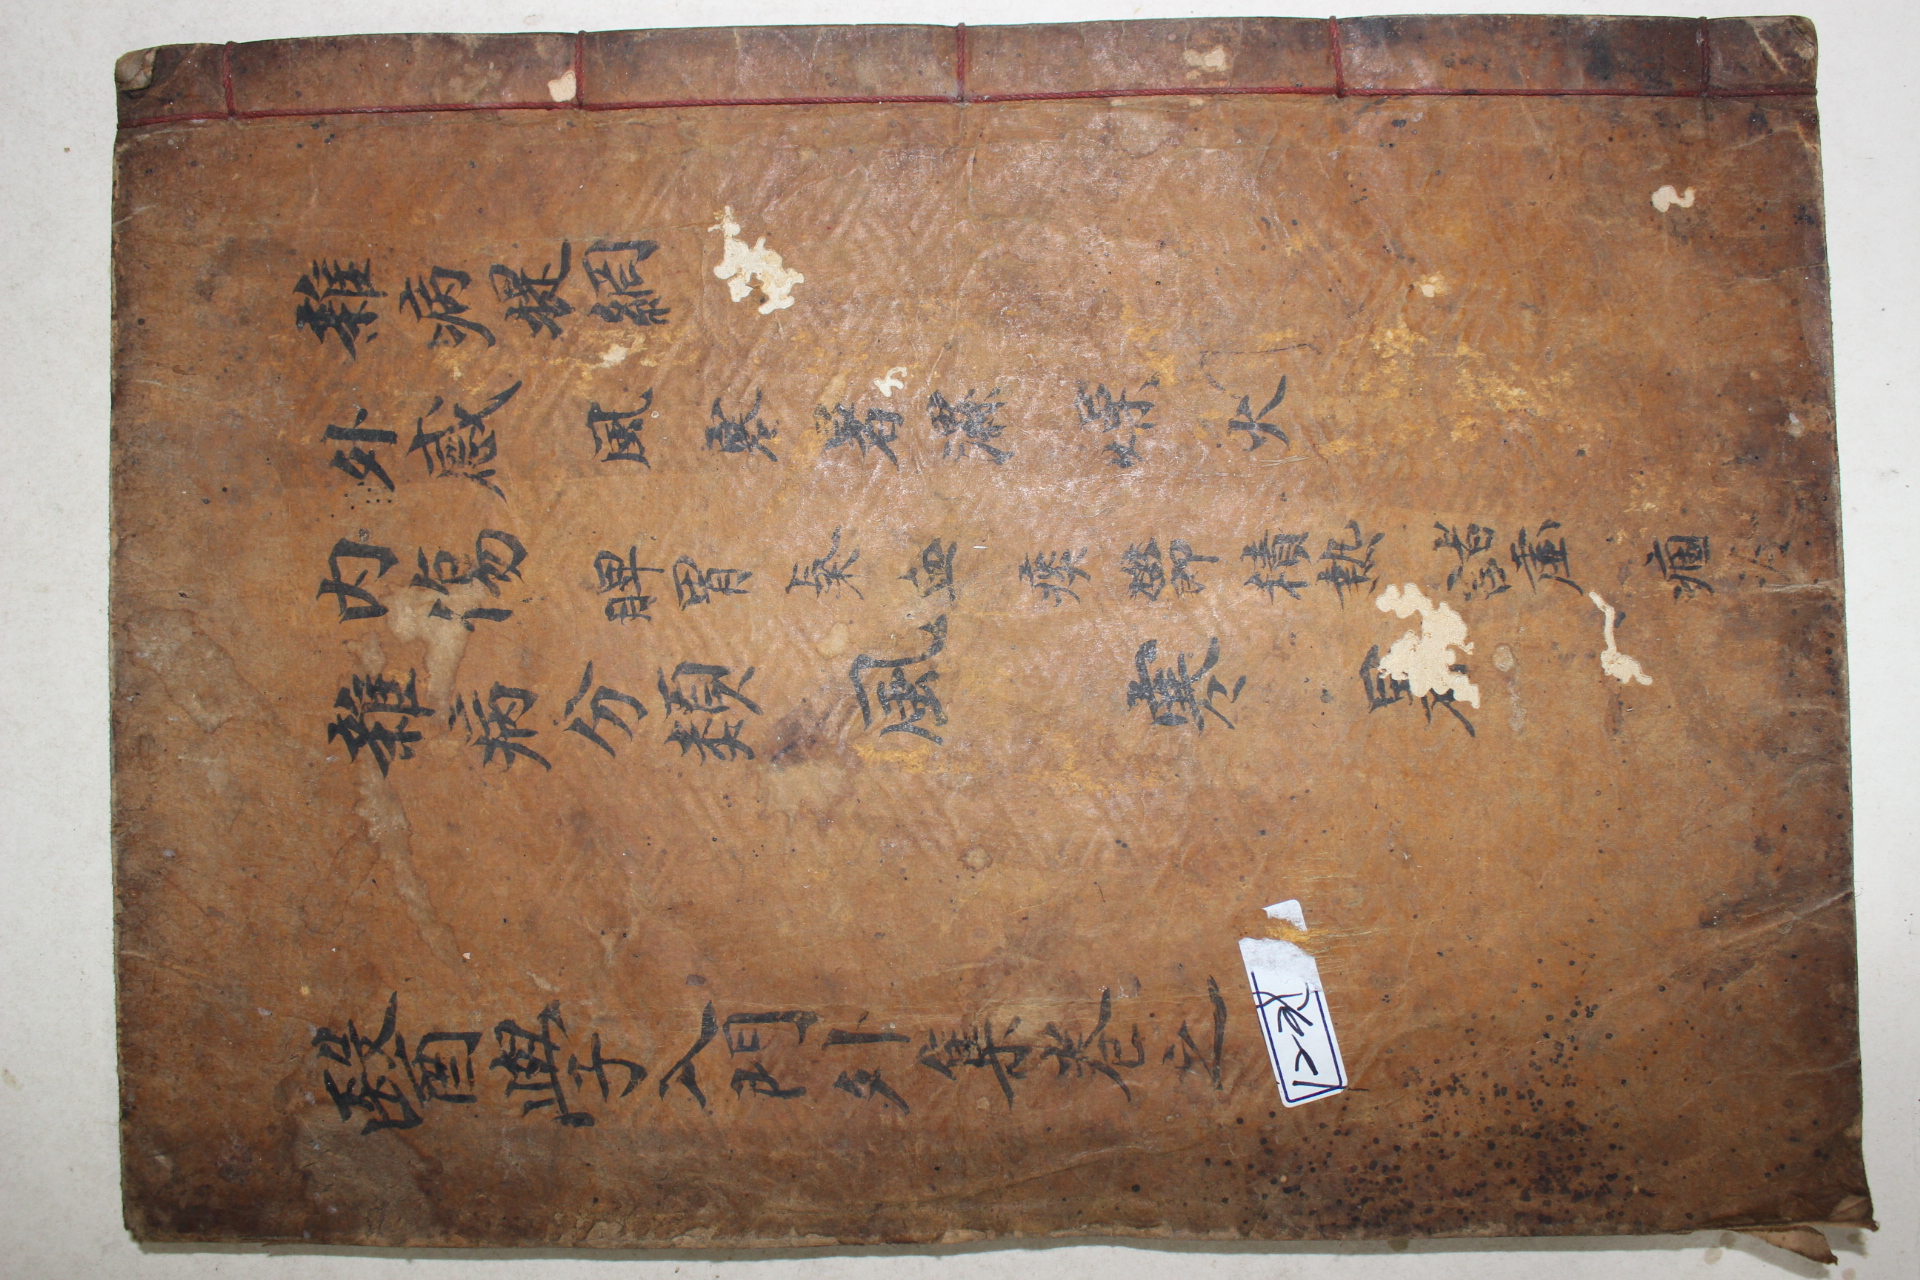 雜病提綱
外感 風寒暑濕燥火
內傷 脾胃 氣血 痰鬱積熱 痼
雜病分類 風 寒
醫學入門外集卷之